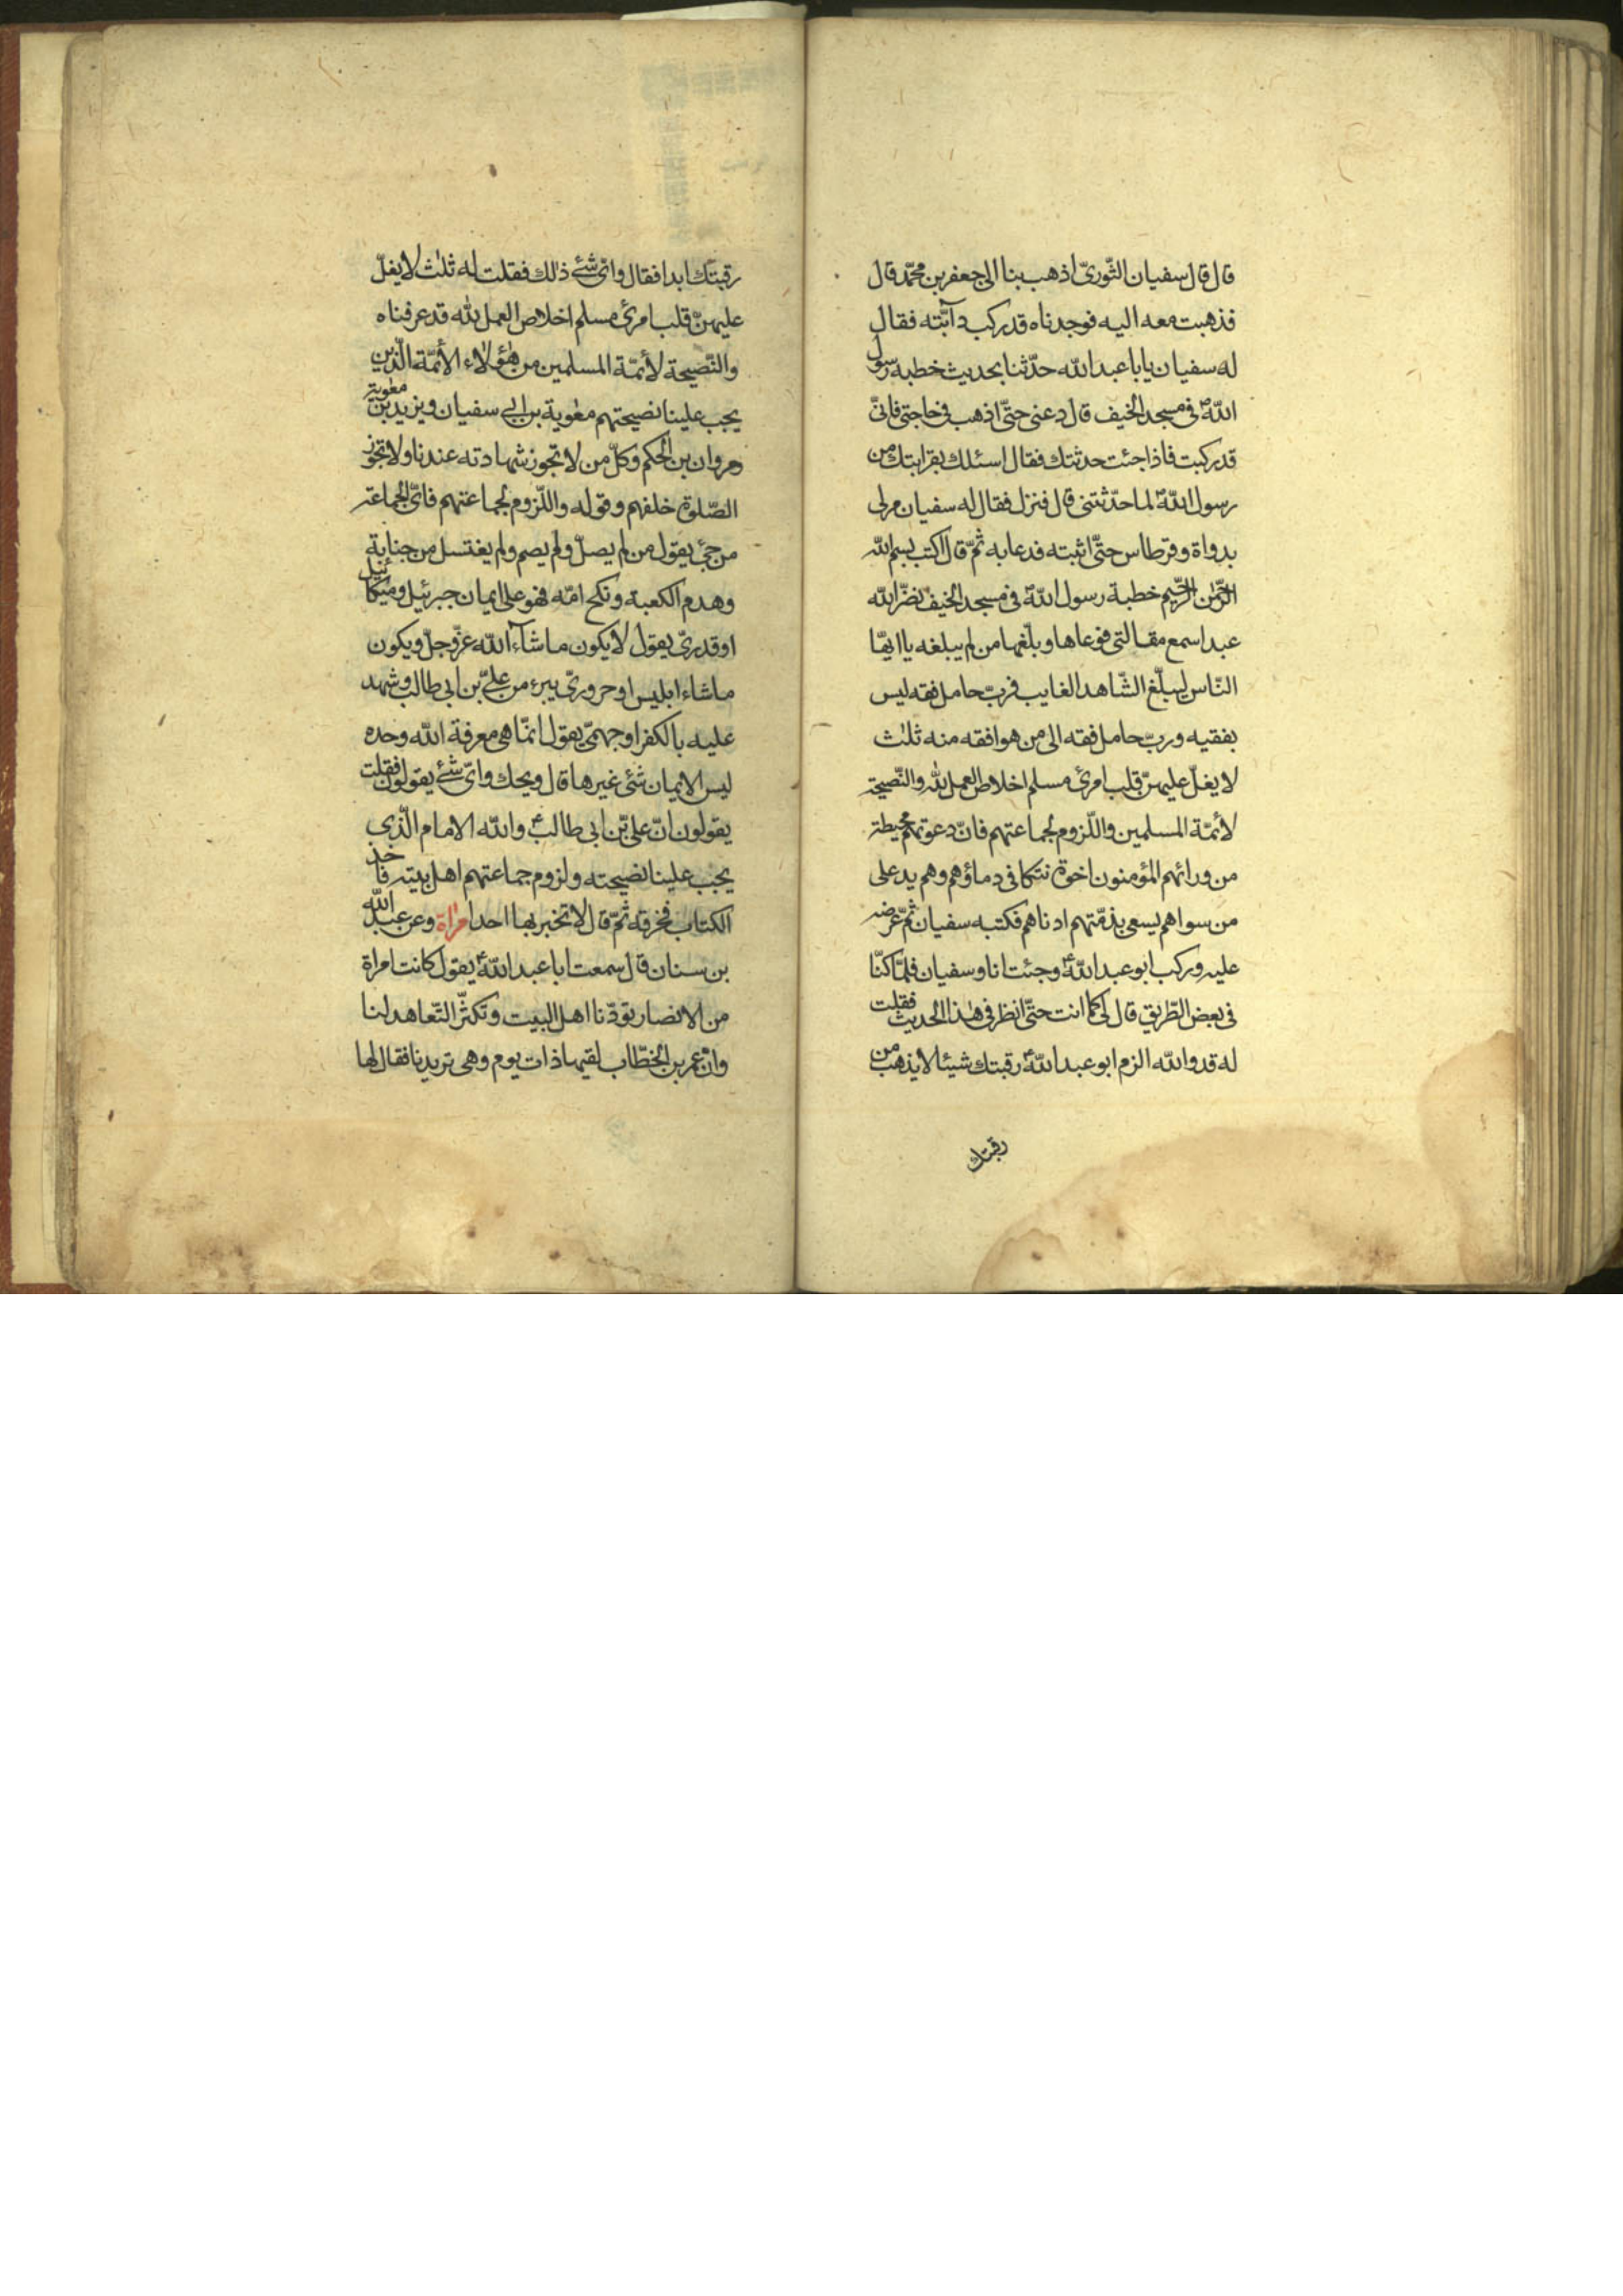 قال قال سفيان الثّوريّ اذهب بنا الى جعفر بن محمّد قال
فذهبت معه اليه فوجدناه قد ركب دآبّته فقال
له سفيان يابا عبد الله حدّثنا بحديث خطبة رسول
اللهّ في مسجد الخيف قال دعنى حتّى اذهب في حاجتى فانّى
قد ركبت فاذا جئت حدثتك فقال اسئلك بقرابتك من
رسول اللهّ لما حدّثتنى قال فنزل فقال له سفيان مر لى
بدواة وقرطاس حتّى اثبته فدعا به ثمّ قال اكتب بسم الله
الرّحمن الرّحيم خطبة رسول اللهّ في مسجد الخيف نضّر الله
عبدا سمع مقالتى فوعاها وبلّغها من لم يبلغه يا ايّها
النّاس ليبلّغ الشّاهد الغايب فربّ حامل فقه ليس
بفقيه وربّ حامل فقه الى من هو افقه منه ثلث
لا يغلّ عليهنّ قلب امرئ مسلم اخلاص العمل لله والنّصيحة
لأئمّة المسلمين واللّزوم لجماعتهم فانّ دعوتهم محيطة
من ورائهم المؤمنون اخوة تتكافى دماؤهم وهم يد على
من سواهم يسعى بذمّتهم ادناهم فكتبه سفيان ثمّ عرضه
عليه وركب ابو عبد الله وجئت انا وسفيان فلمّا كنّا
في بعض الطّريق قال لى كما انت حتّى انظر في هذا الحديث فقلت
له قد والله الزم ابو عبد الله رقبتك شيئا لا يذهب من
رقبتك
رقبتك ابدا فقال واىّ شئ ذلك فقلت له ثلث لا يغلّ
عليهنّ قلب امرئ مسلم اخلاص العمل لله قد عرفناه
والنّصيحة لأئمّة المسلمين من هؤلاء الأئمّة الّذين
يجب علينا نصيحتهم معوية بن ابى سفيان ويزيد بن معوية
ومروان بن الحكم وكلّ من لا تجوز شهادته عندنا ولا تجوز
الصّلوة خلفهم وقوله واللّزوم لجماعتهم فاىّ الجماعة
مرجئ يقول من لم يصلّ ولم يصم ولم يغتسل من جنابة
وهدم الكعبة ونكح امّه فهو على ايمان جبرئيل وميكائيل
او قدرىّ يقول لا يكون ما شآء الله عزّ وجلّ ويكون
ما شاء ابليس او حرورىّ يبرء من علىّ بن ابى طالب وشهد
عليه بالكفر او جهمىّ يقول انّما هى معرفة الله وحده
ليس الايمان شئ غيرها قال ويحك واىّ شئ يقولون فقلت
يقولون انّ علىّ بن ابى طالب والله الامام الّذى
يجب علينا نصيحته ولزوم جماعتهم اهل بيته فاخذ
الكتاب فخرقه ثمّ قال لا تخبر بها احدا مراة وعن عبد الله
بن سنان قال سمعت ابا عبد الله يقول كانت امراة
من الانصار تودّنا اهل البيت وتكثّر التّعاهد لنا
وانّ عمر بن الخطّاب لقيها ذات يوم وهى تريدنا فقال لها